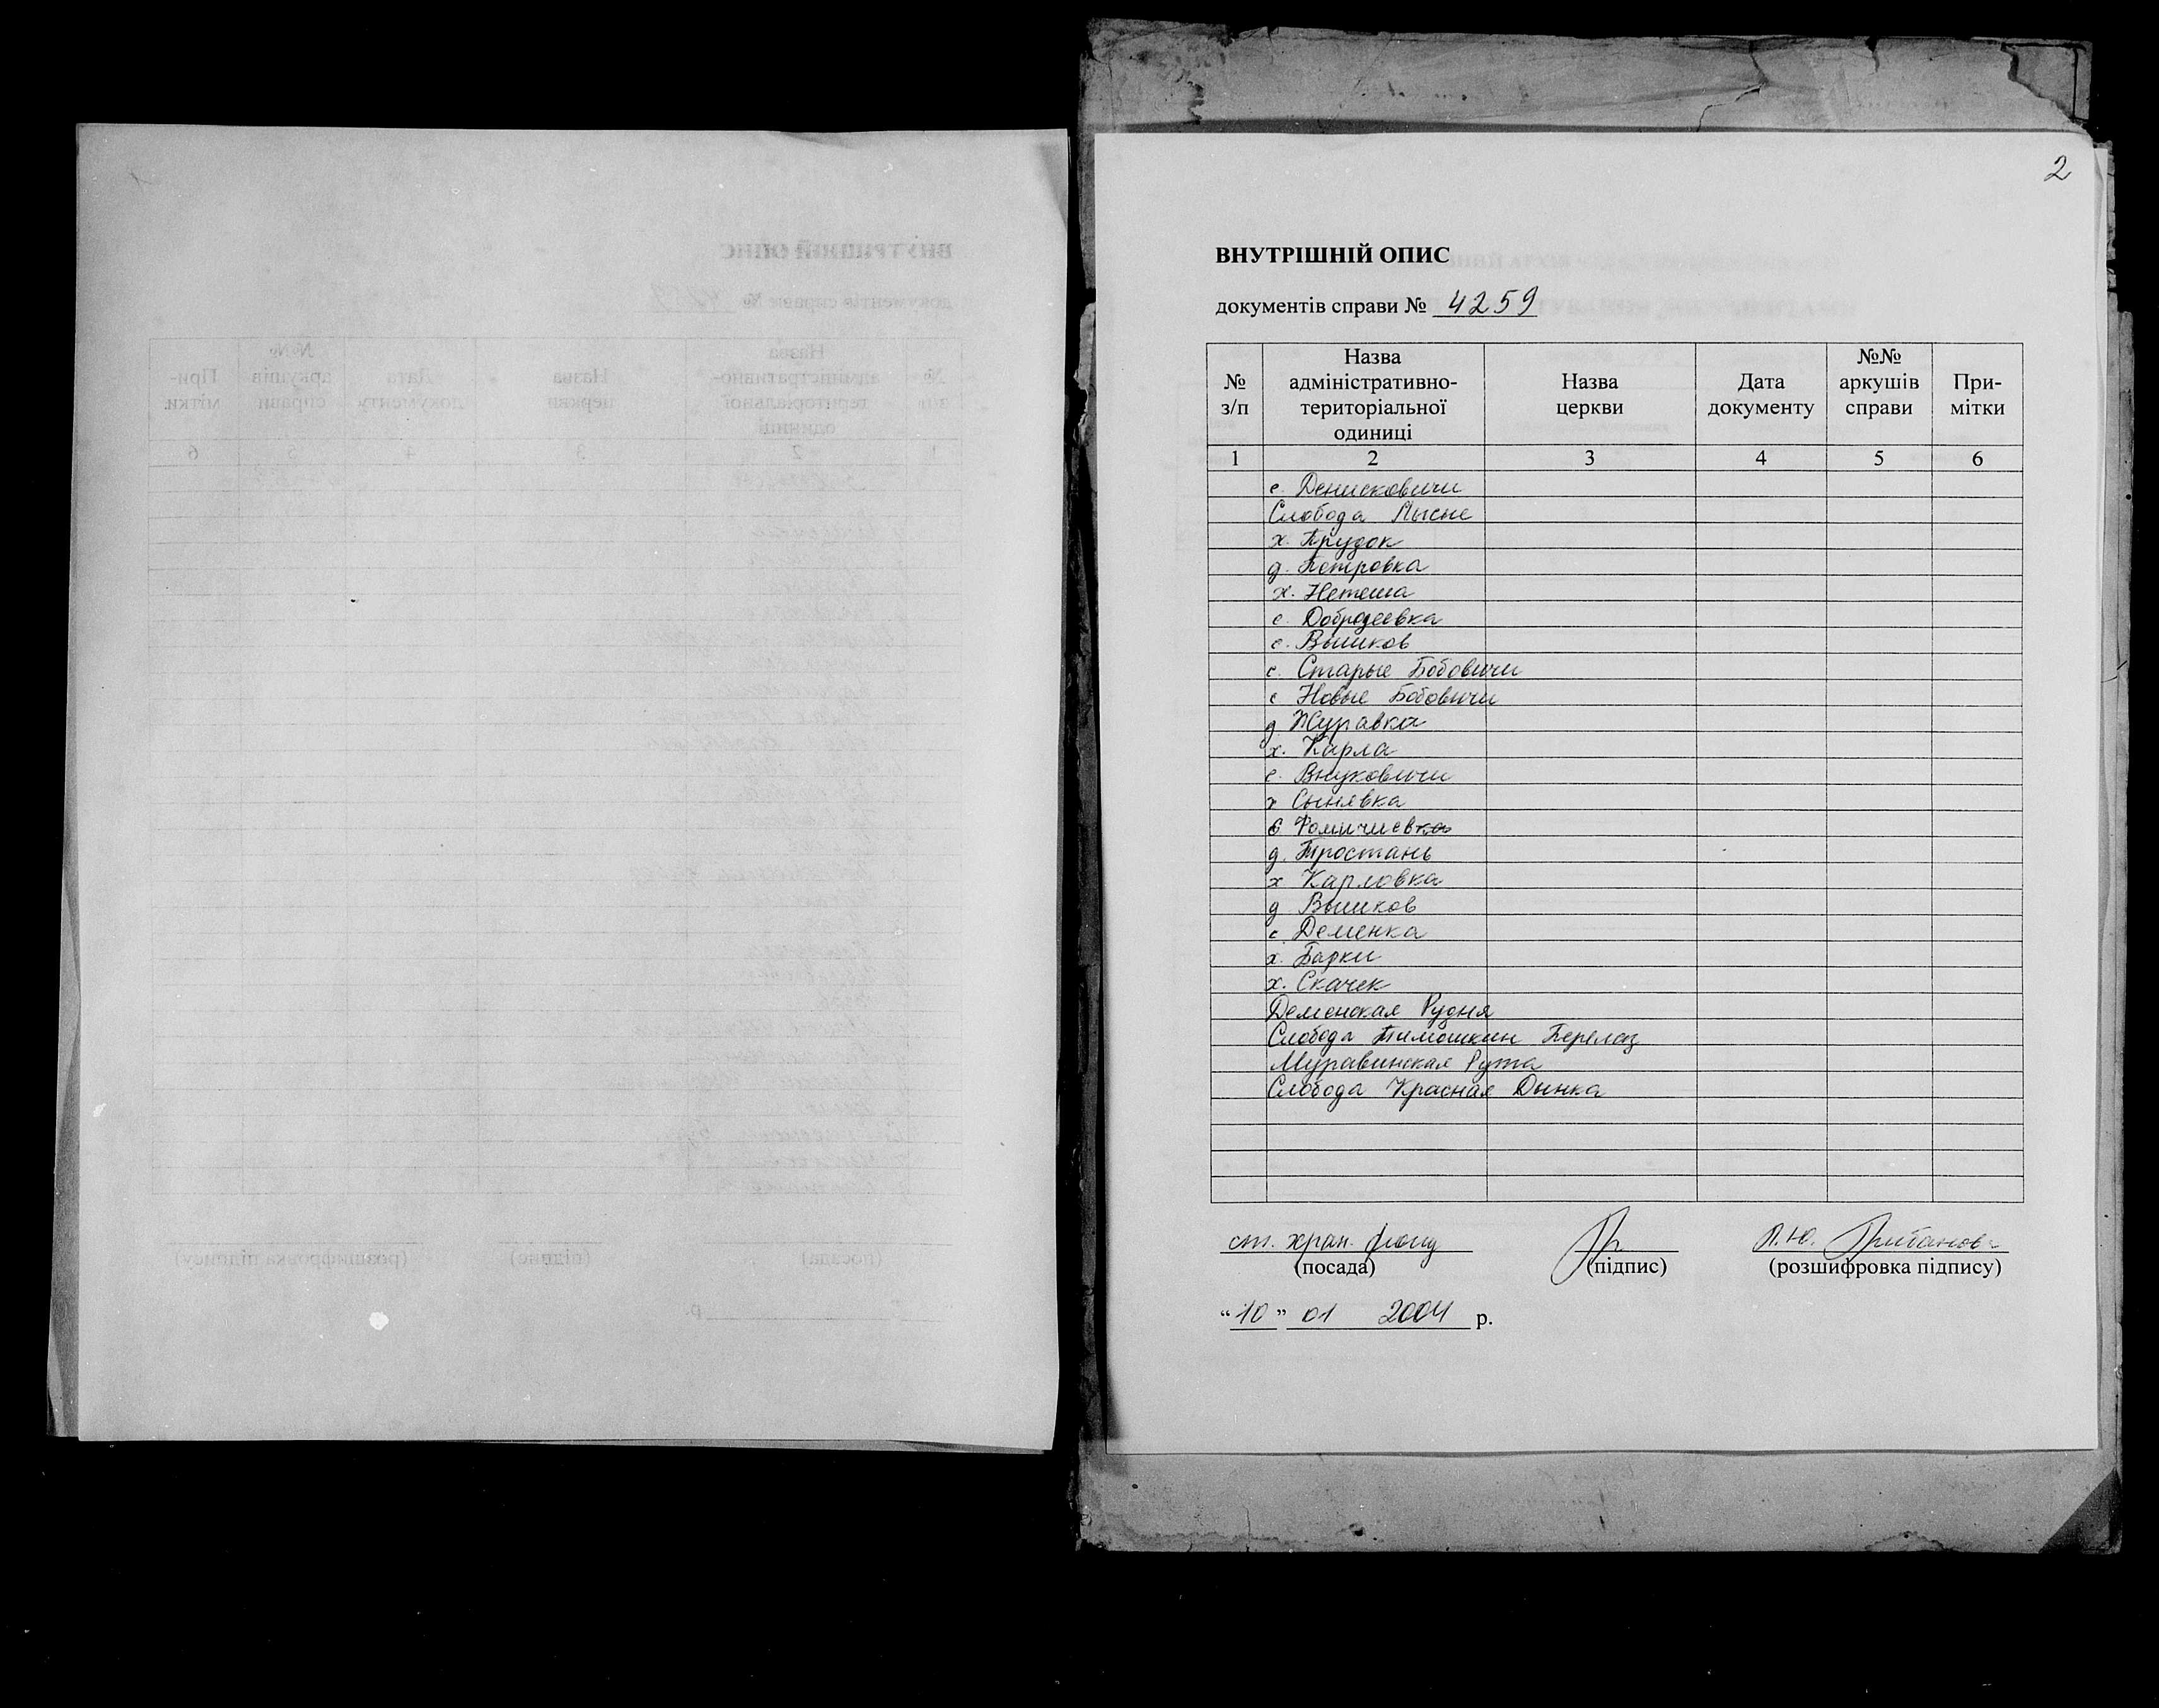 2
ВНУТРІШНІЙ ОПИС
документів справи № 4259
№ з/п
Назва адміністративно-територіальної одиниці
Назва церкви
Дата документу
№№ аркушів справи
При-мітки
1 2 3 4 5 6
с. Денисковичи
Слобода Лысые
х. Прудок
д. Петровка
х. Нетеша
с. Добродеевка
с. Вышков
с. Старые Бобовичи
с Новые Бобовичи
д Журавка
х. Карла
с. Внуковичи
х Сынявка
Фомичиевка
д. Тростань
х Карловка
д Вышков
с Деменка
х. Барки
х. Скачек
Деменская Рудня
Слобода Тимошкин Перелаз
Муравинская Рута
Слобода Красная Дынка
ст. хран. фонд
(посада)
(підпис)
(розшифровка підпису)
“10” 01 2004 р.